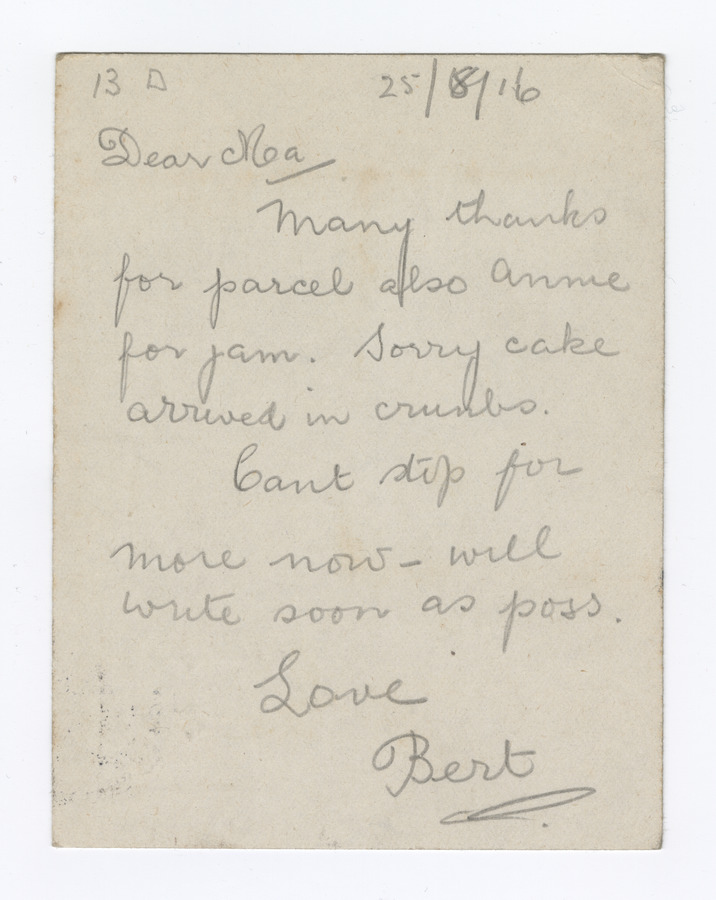 13 D 25/8/16
Dear Ma
Many thanks
for parcel also Annie
for jam. Sorry cake
arrived in crumbs.
Cant stop for
more now - will
write soon as poss.
Love
Bert